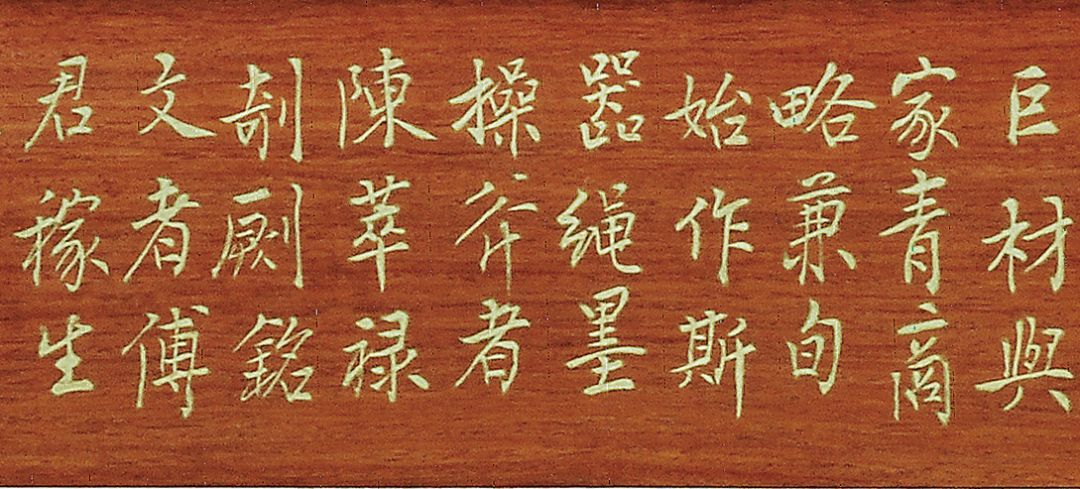 巨材與
家青商
略兼旬
始作斯
器繩墨
操斧者
陳萃禄
剞劂銘
文者傅
君稼生